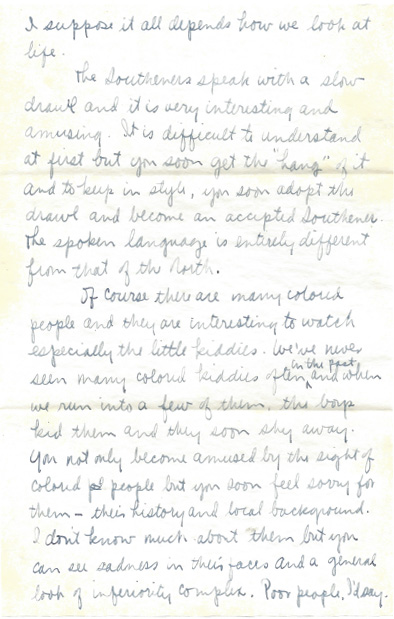 I suppose it all depends how we look at
life.
The Southeners speak with a slow
drawl and it is very interesting and
amusing. It is difficult to understand
at first but you soon get the "hang" of it
and to keep in style, you soon adopt the
drawl and become an accepted Southener.
The spoken language is entirely different
from that of the North.
Of course there are many colored
people and they are interesting to watch
especially the little kiddies. We've never
seen many colored kiddies often in the past, and when
we run into a few of them, the boys
kid them and they soon shy away.
You not only become amused by the sight of
colored people but you soon feel sorry for
them - their history and local background.
I don't know much about them but you
can see sadness in their faces and a general
look of inferiority complex. Poor people, I'd say.